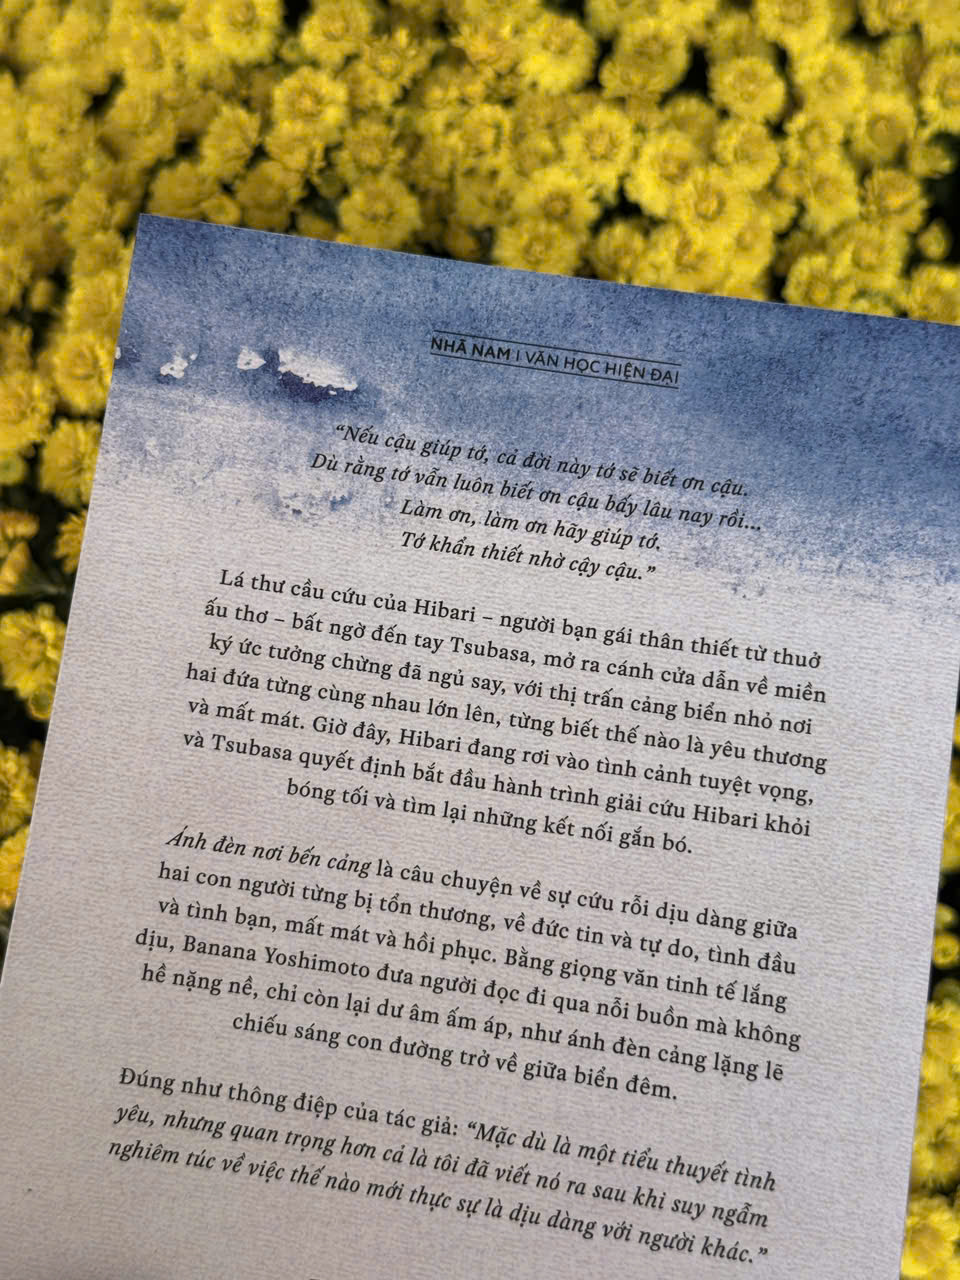 NHÃ NAM | VĂN HỌC HIỆN ĐẠI
“Nếu cậu giúp tớ, cả đời này tớ sẽ biết ơn cậu.
Dù rằng tớ vẫn luôn biết ơn cậu bấy lâu nay rồi...
Làm ơn, làm ơn hãy giúp tớ.
Tớ khẩn thiết nhờ cậy cậu.”
Lá thư cầu cứu của Hibari – người bạn gái thân thiết từ thuở
ấu thơ – bất ngờ đến tay Tsubasa, mở ra cánh cửa dẫn về miền
ký ức tưởng chừng đã ngủ say, với thị trấn cảng biển nhỏ nơi
hai đứa từng cùng nhau lớn lên, từng biết thế nào là yêu thương
và mất mát. Giờ đây, Hibari đang rơi vào tình cảnh tuyệt vọng,
và Tsubasa quyết định bắt đầu hành trình giải cứu Hibari khỏi
bóng tối và tìm lại những kết nối gắn bó.
Ánh đèn nơi bến cảng là câu chuyện về sự cứu rỗi dịu dàng giữa
hai con người từng bị tổn thương, về đức tin và tự do, tình đầu
và tình bạn, mất mát và hồi phục. Bằng giọng văn tinh tế lắng
dịu, Banana Yoshimoto đưa người đọc đi qua nỗi buồn mà không
hề nặng nề, chỉ còn lại dư âm ấm áp, như ánh đèn cảng lặng lẽ
chiếu sáng con đường trở về giữa biển đêm.
Đúng như thông điệp của tác giả: “Mặc dù là một tiểu thuyết tình
yêu, nhưng quan trọng hơn cả là tôi đã viết nó ra sau khi suy ngẫm
nghiêm túc về việc thế nào mới thực sự là dịu dàng với người khác.”